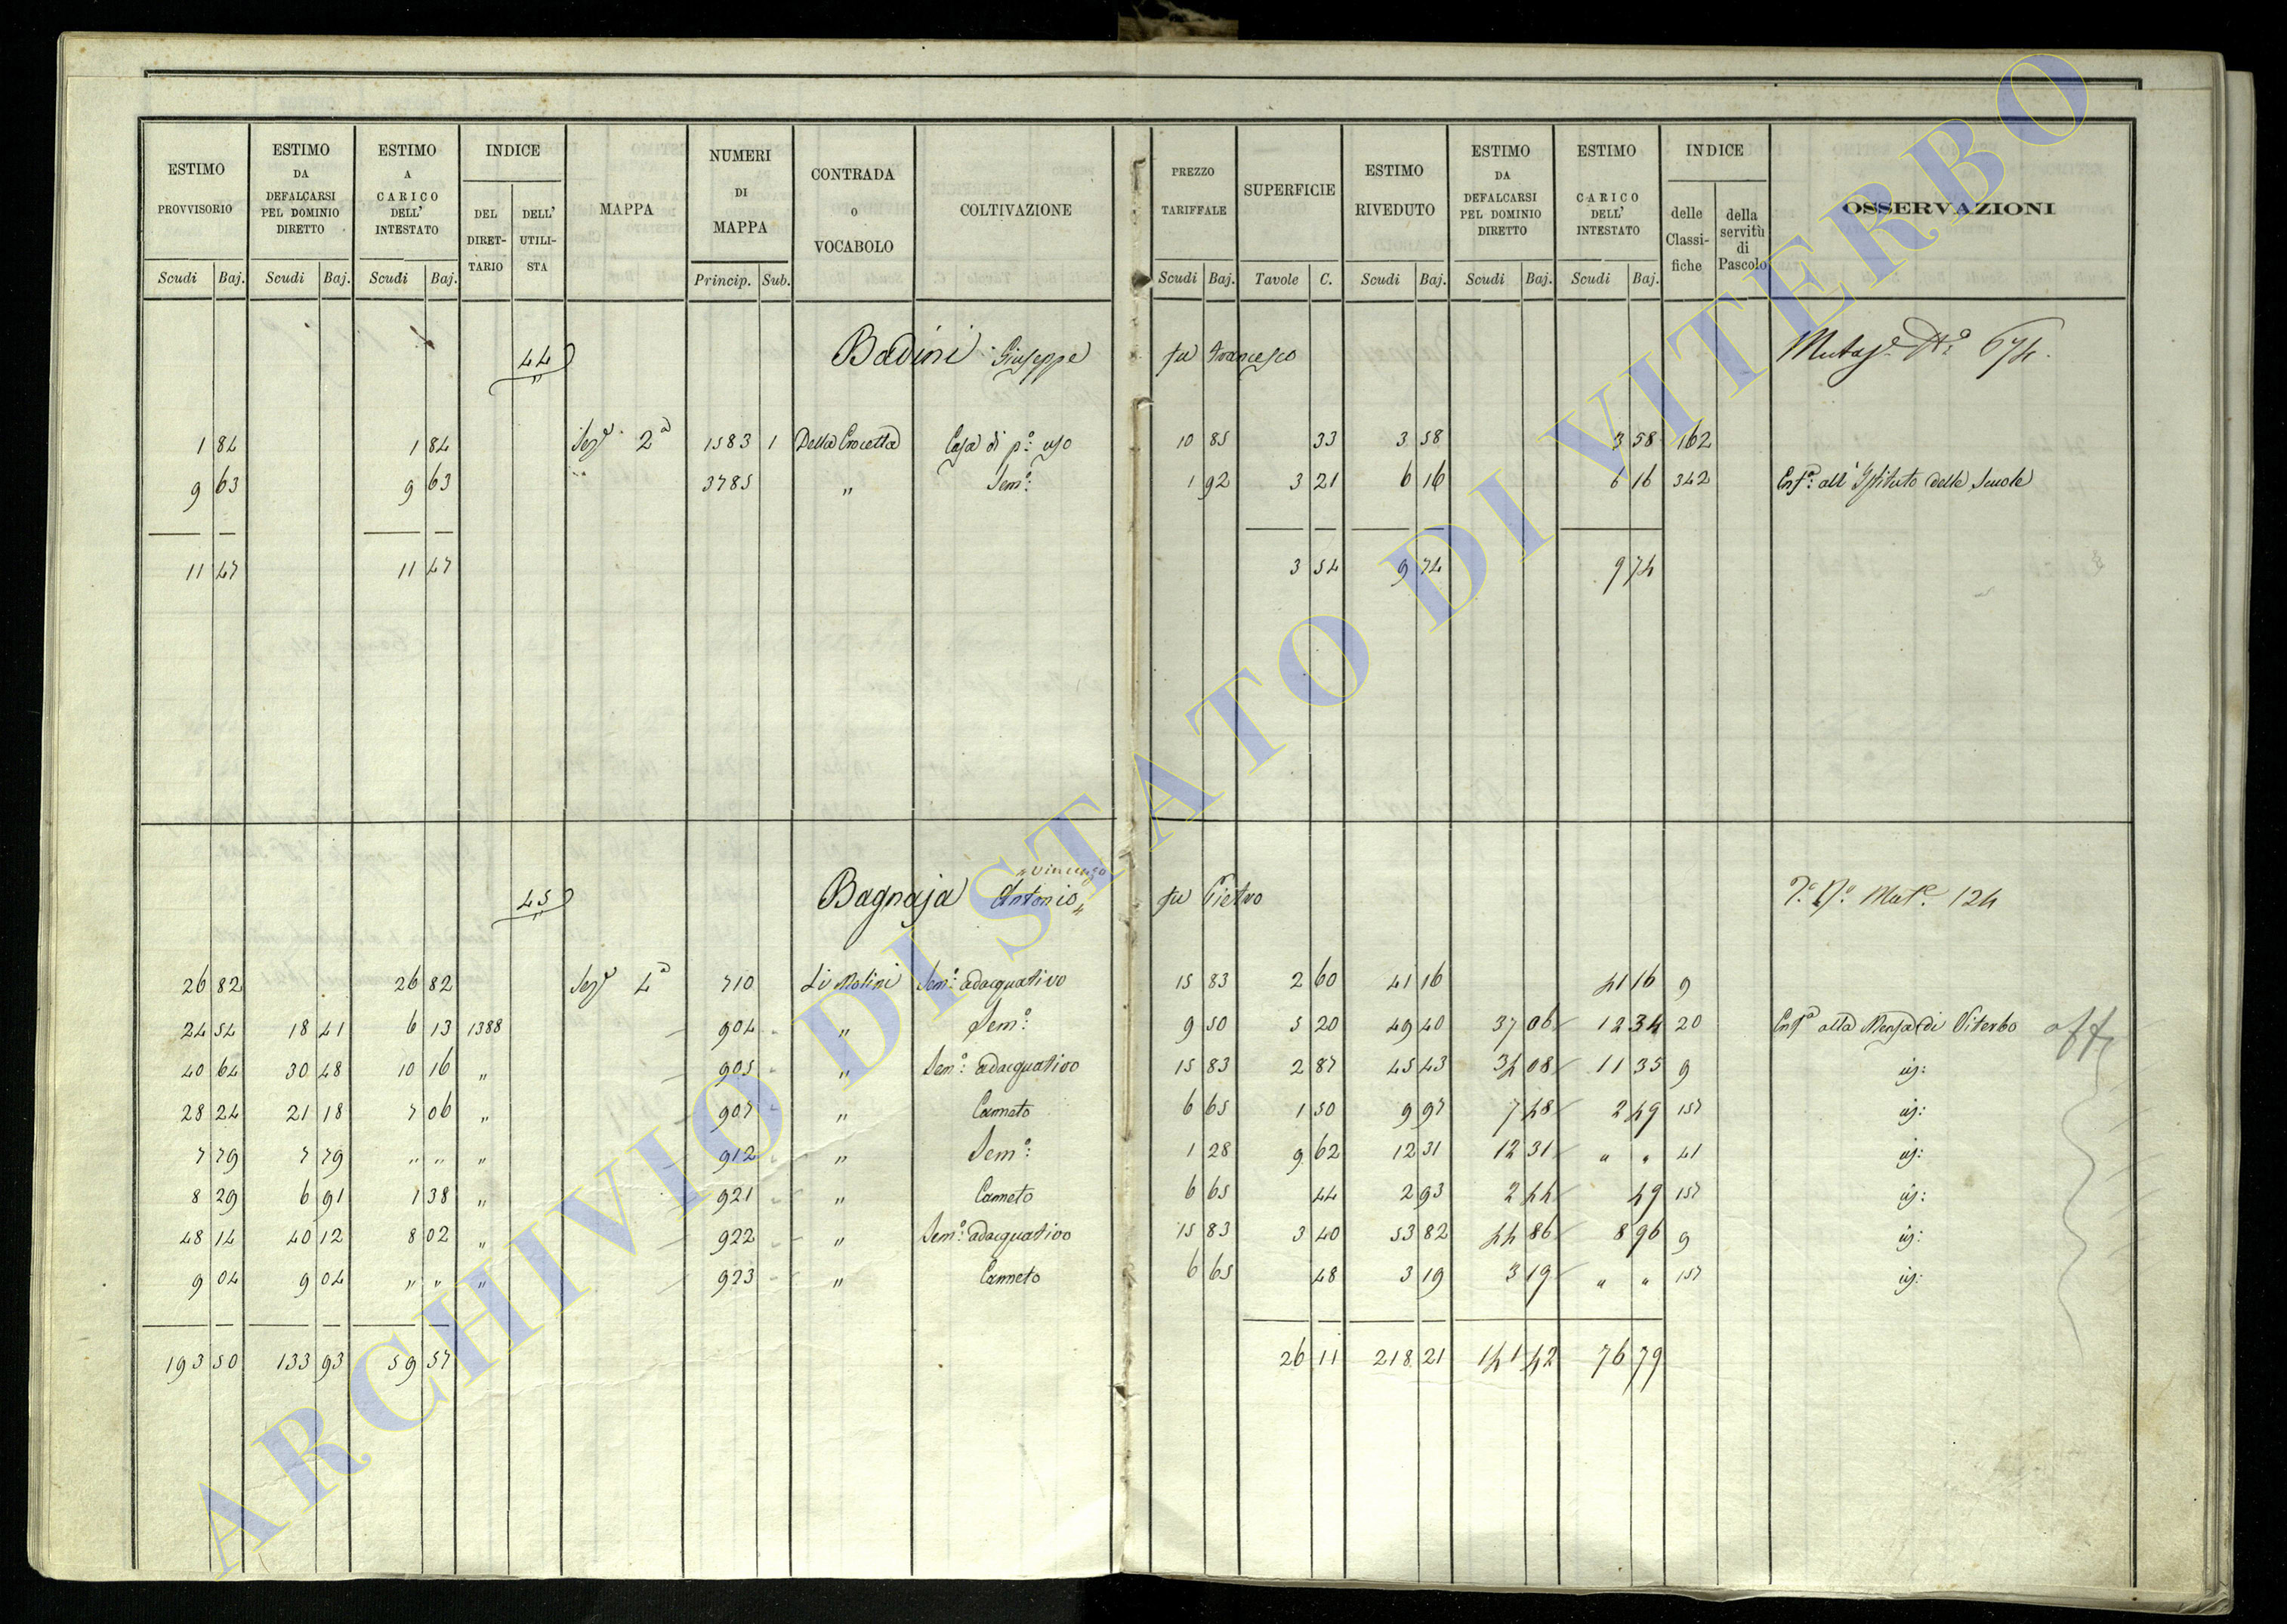 ESTIMO PROVVISORIO Scudi Baj.
ESTIMO DA DEFALCARSI PEL DOMINIO DIRETTO Scudi Baj.
ESTIMO A CARICO DELL' INTESTATO Scudi Baj.
INDICE DEL DIRET-TARIO DELL' UTILI-STA
MAPPA
NUMERI DI MAPPA Princip. Sub.
CONTRADA O VOCABOLO
COLTIVAZIONE
PREZZO TARIFFALE Scudi Baj.
SUPERFICIE Tavole C.
ESTIMO RIVEDUTO Scudi Baj.
ESTIMO DA DEFALCARSI PEL DOMINIO DIRETTO Scudi Baj.
ESTIMO CARICO DELL' INTESTATO Scudi Baj.
INDICE delle Classi-fiche della servitù di Pascolo
OSSERVAZIONI
44 Badini Giuseppe fu Francesco 674
1 84 1 84 Sez.e 2a 1583 1 Della Crocetta Casa di p.o uso 10 85 33 3 58 3 58 162
9 63 9 63 " 3785 " Sem.o: 1 92 3 21 6 16 6 16 342 Enf.a: all' Istituto delle Scuole
11 47 11 47 3 54 9 74 9 74
45 Bagnaja Antonio Vincenzo fu Pietro Mut.e 124
26 82 26 82 Sez.e 4a 710 Li Molini Sem.o: adacquativo 15 83 2 60 41 16 41 16 9
24 54 18 41 6 13 1388 904 " Sem.o: 9 50 5 20 49 40 37 06 12 34 20 Enf.a alla Mensa di Viterbo
40 64 30 48 10 16 " 905 " Sem.o: adacquativo 15 83 2 87 45 43 34 08 11 35 9 id:
28 24 21 18 7 06 " 907 " Canneto 6 65 1 50 9 97 7 48 2 49 157 id:
7 79 7 79 " " " 912 " Sem.o: 1 28 9 62 12 31 12 31 " " 41 id:
8 29 6 91 1 38 " 921 " Canneto 6 65 44 2 93 2 44 49 157 id:
48 14 40 12 8 02 " 922 " Sem.o: adacquativo 15 83 3 40 53 82 44 86 8 96 9 id:
9 04 9 04 " " " 923 " Canneto 6 65 48 3 19 3 19 " " 157 id:
193 50 133 93 59 57 26 11 218 21 141 42 76 79
ARCHIVIO DI STATO DI VITERBO